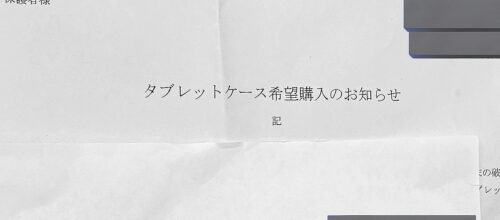 保護者様
タブレットケース希望購入のお知らせ
記
末の破
ブレッ